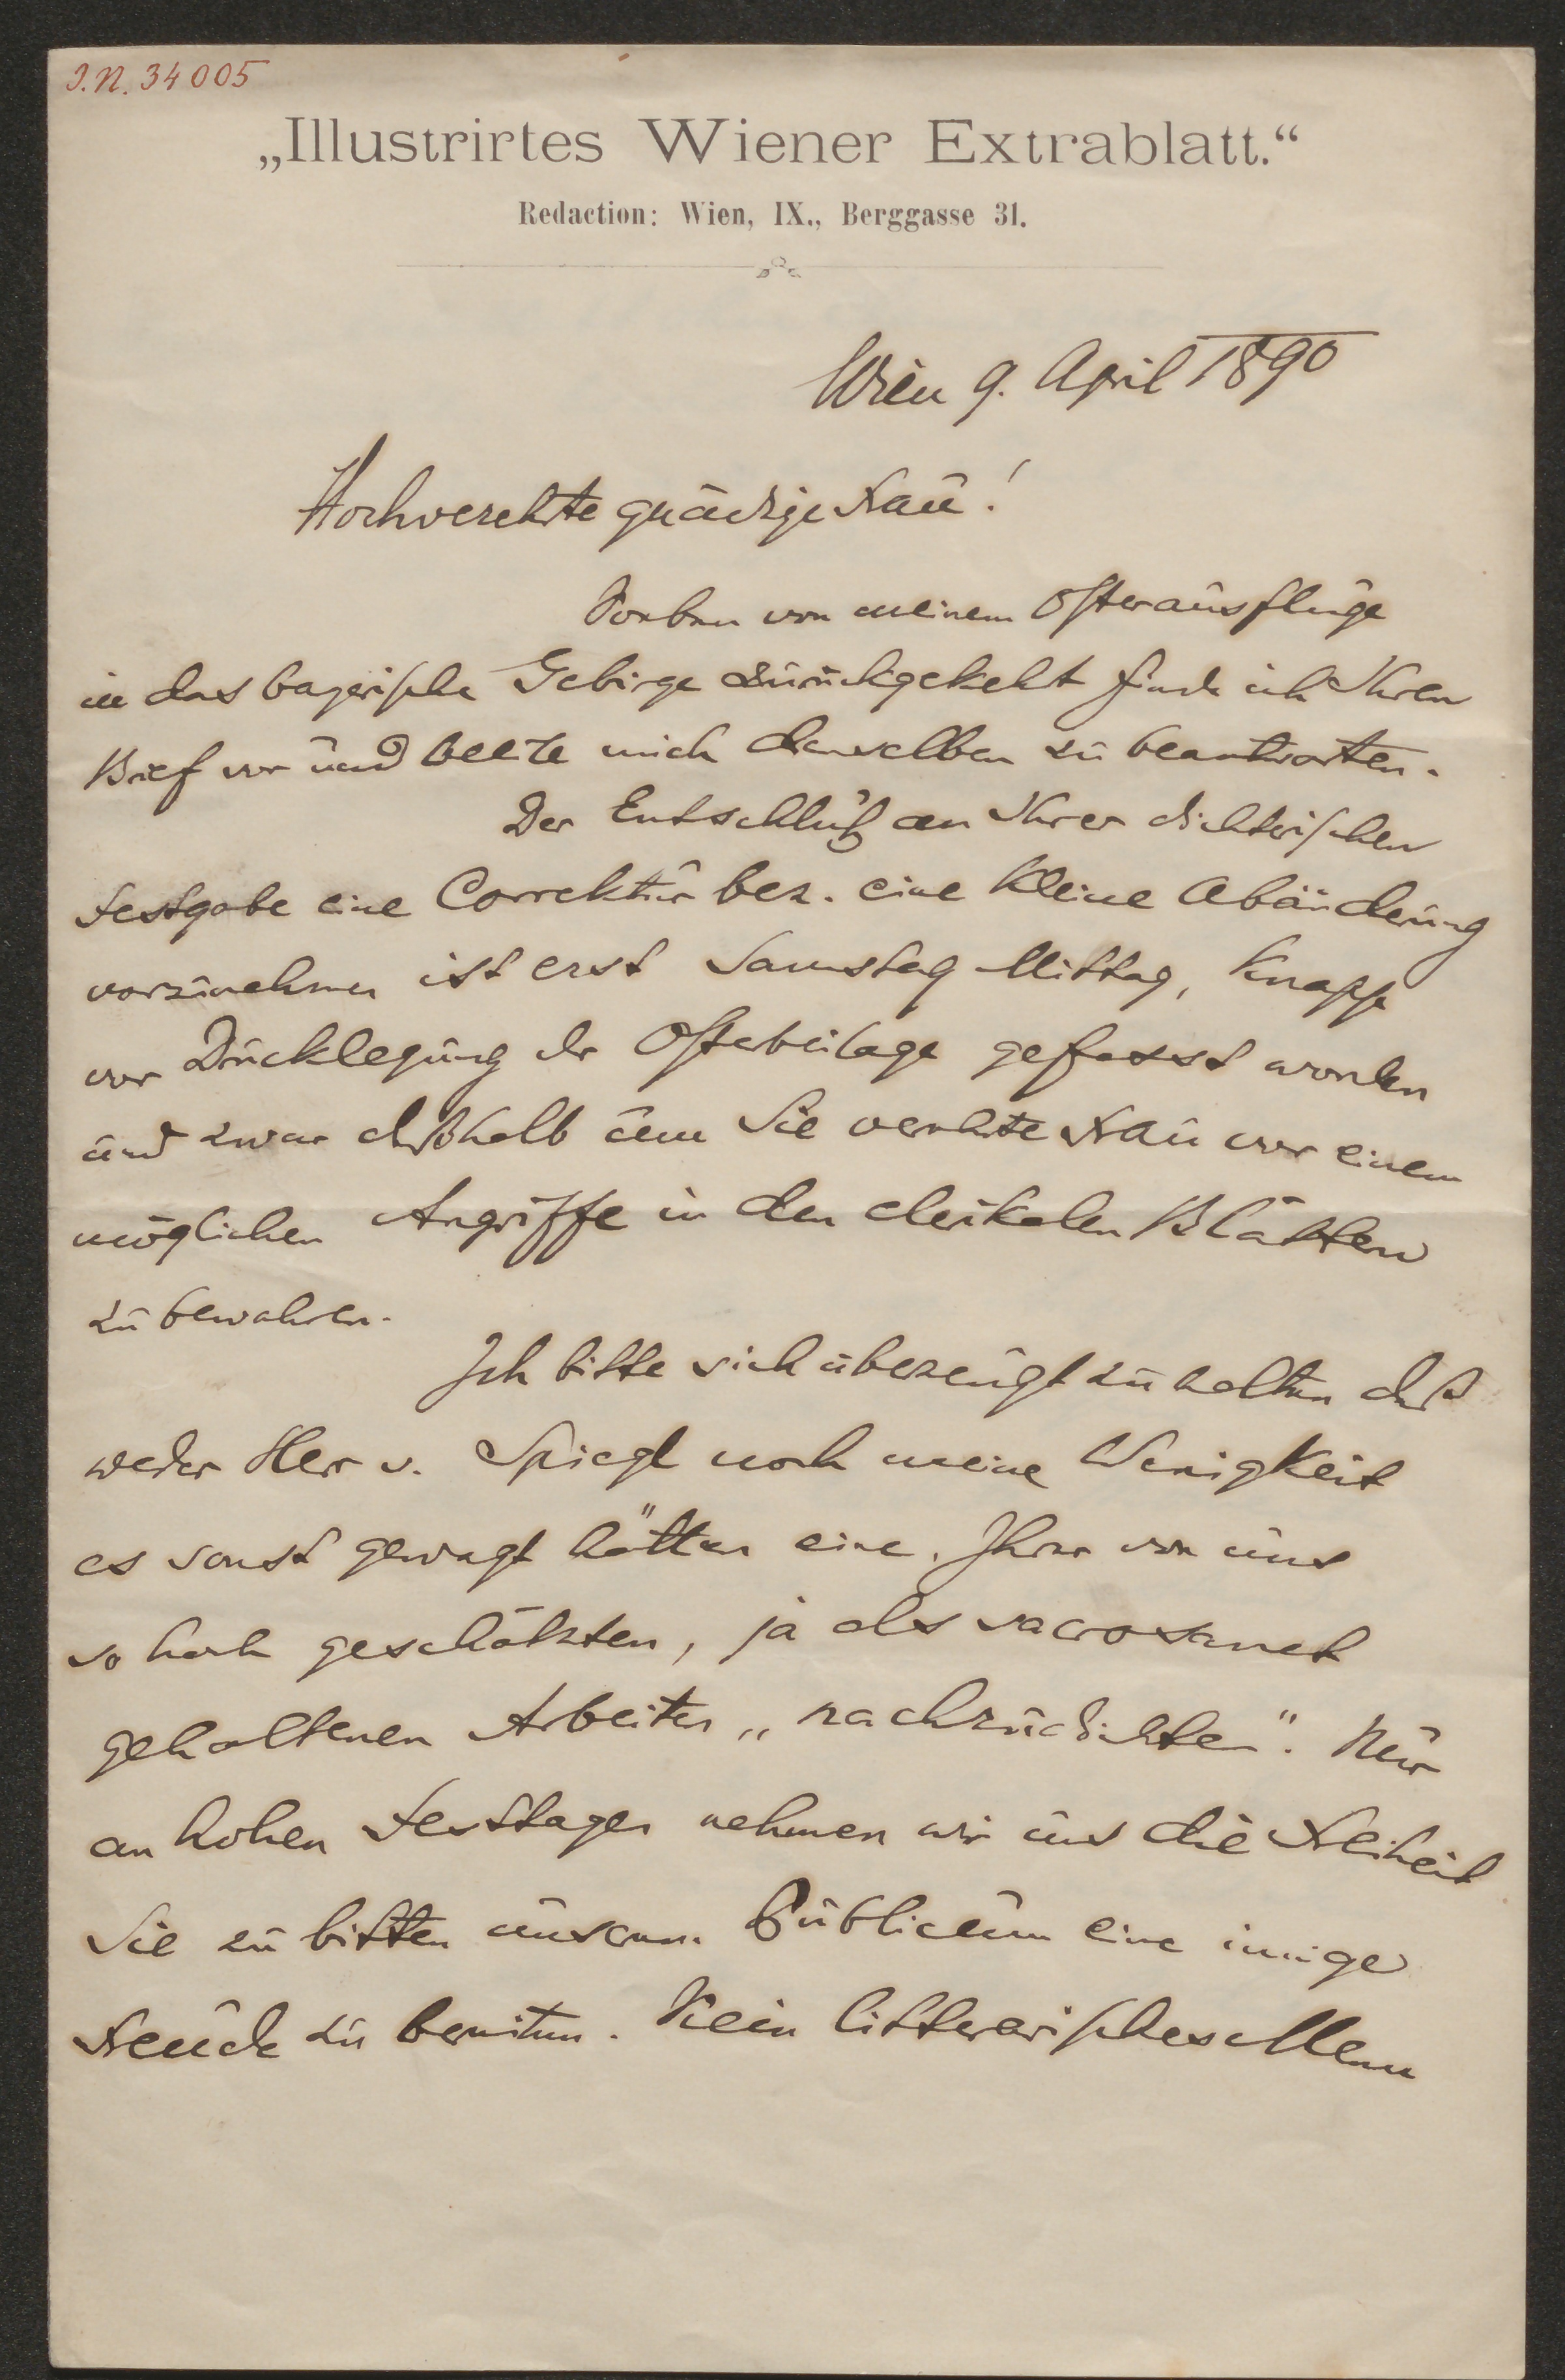 I.N. 34005
„Illustrirtes Wiener Extrablatt.“
Redaction: Wien, IX., Berggasse 31.
Wien 9. April 1890
Hochverehrte gnädige Frau!
Soeben von meinem Osterausfluge
in das bayerische Gebirge zurückgekehrt finde ich Ihren
Brief vor und beeile mich denselben zu beantworten.
Der Entschluß an Ihrer dichterischen
Festgabe eine Correktur bez. eine kleine Abänderung
vorzunehmen ist erst Samstag Mittag, knapp
vor Drucklegung der Osterbeilage gefasst worden
und zwar deßhalb um Sie verehrte Frau vor einem
möglichen Angriffe in den clerikalen Blättern
zu bewahren.
Ich bitte sich überzeugt zu halten daß
weder Herr v. Spiegl noch meine Wenigkeit
es sonst gewagt hätten eine, Ihrer von uns
so hoch geschätzten, ja als sacrosanct
gehaltenen Arbeiten „nachzudichten“. Nur
an hohen Festtagen nehmen wir uns die Freiheit
Sie zu bitten unserem Publicum eine innige
Freude zu bereiten. Kein litterarisches Menu